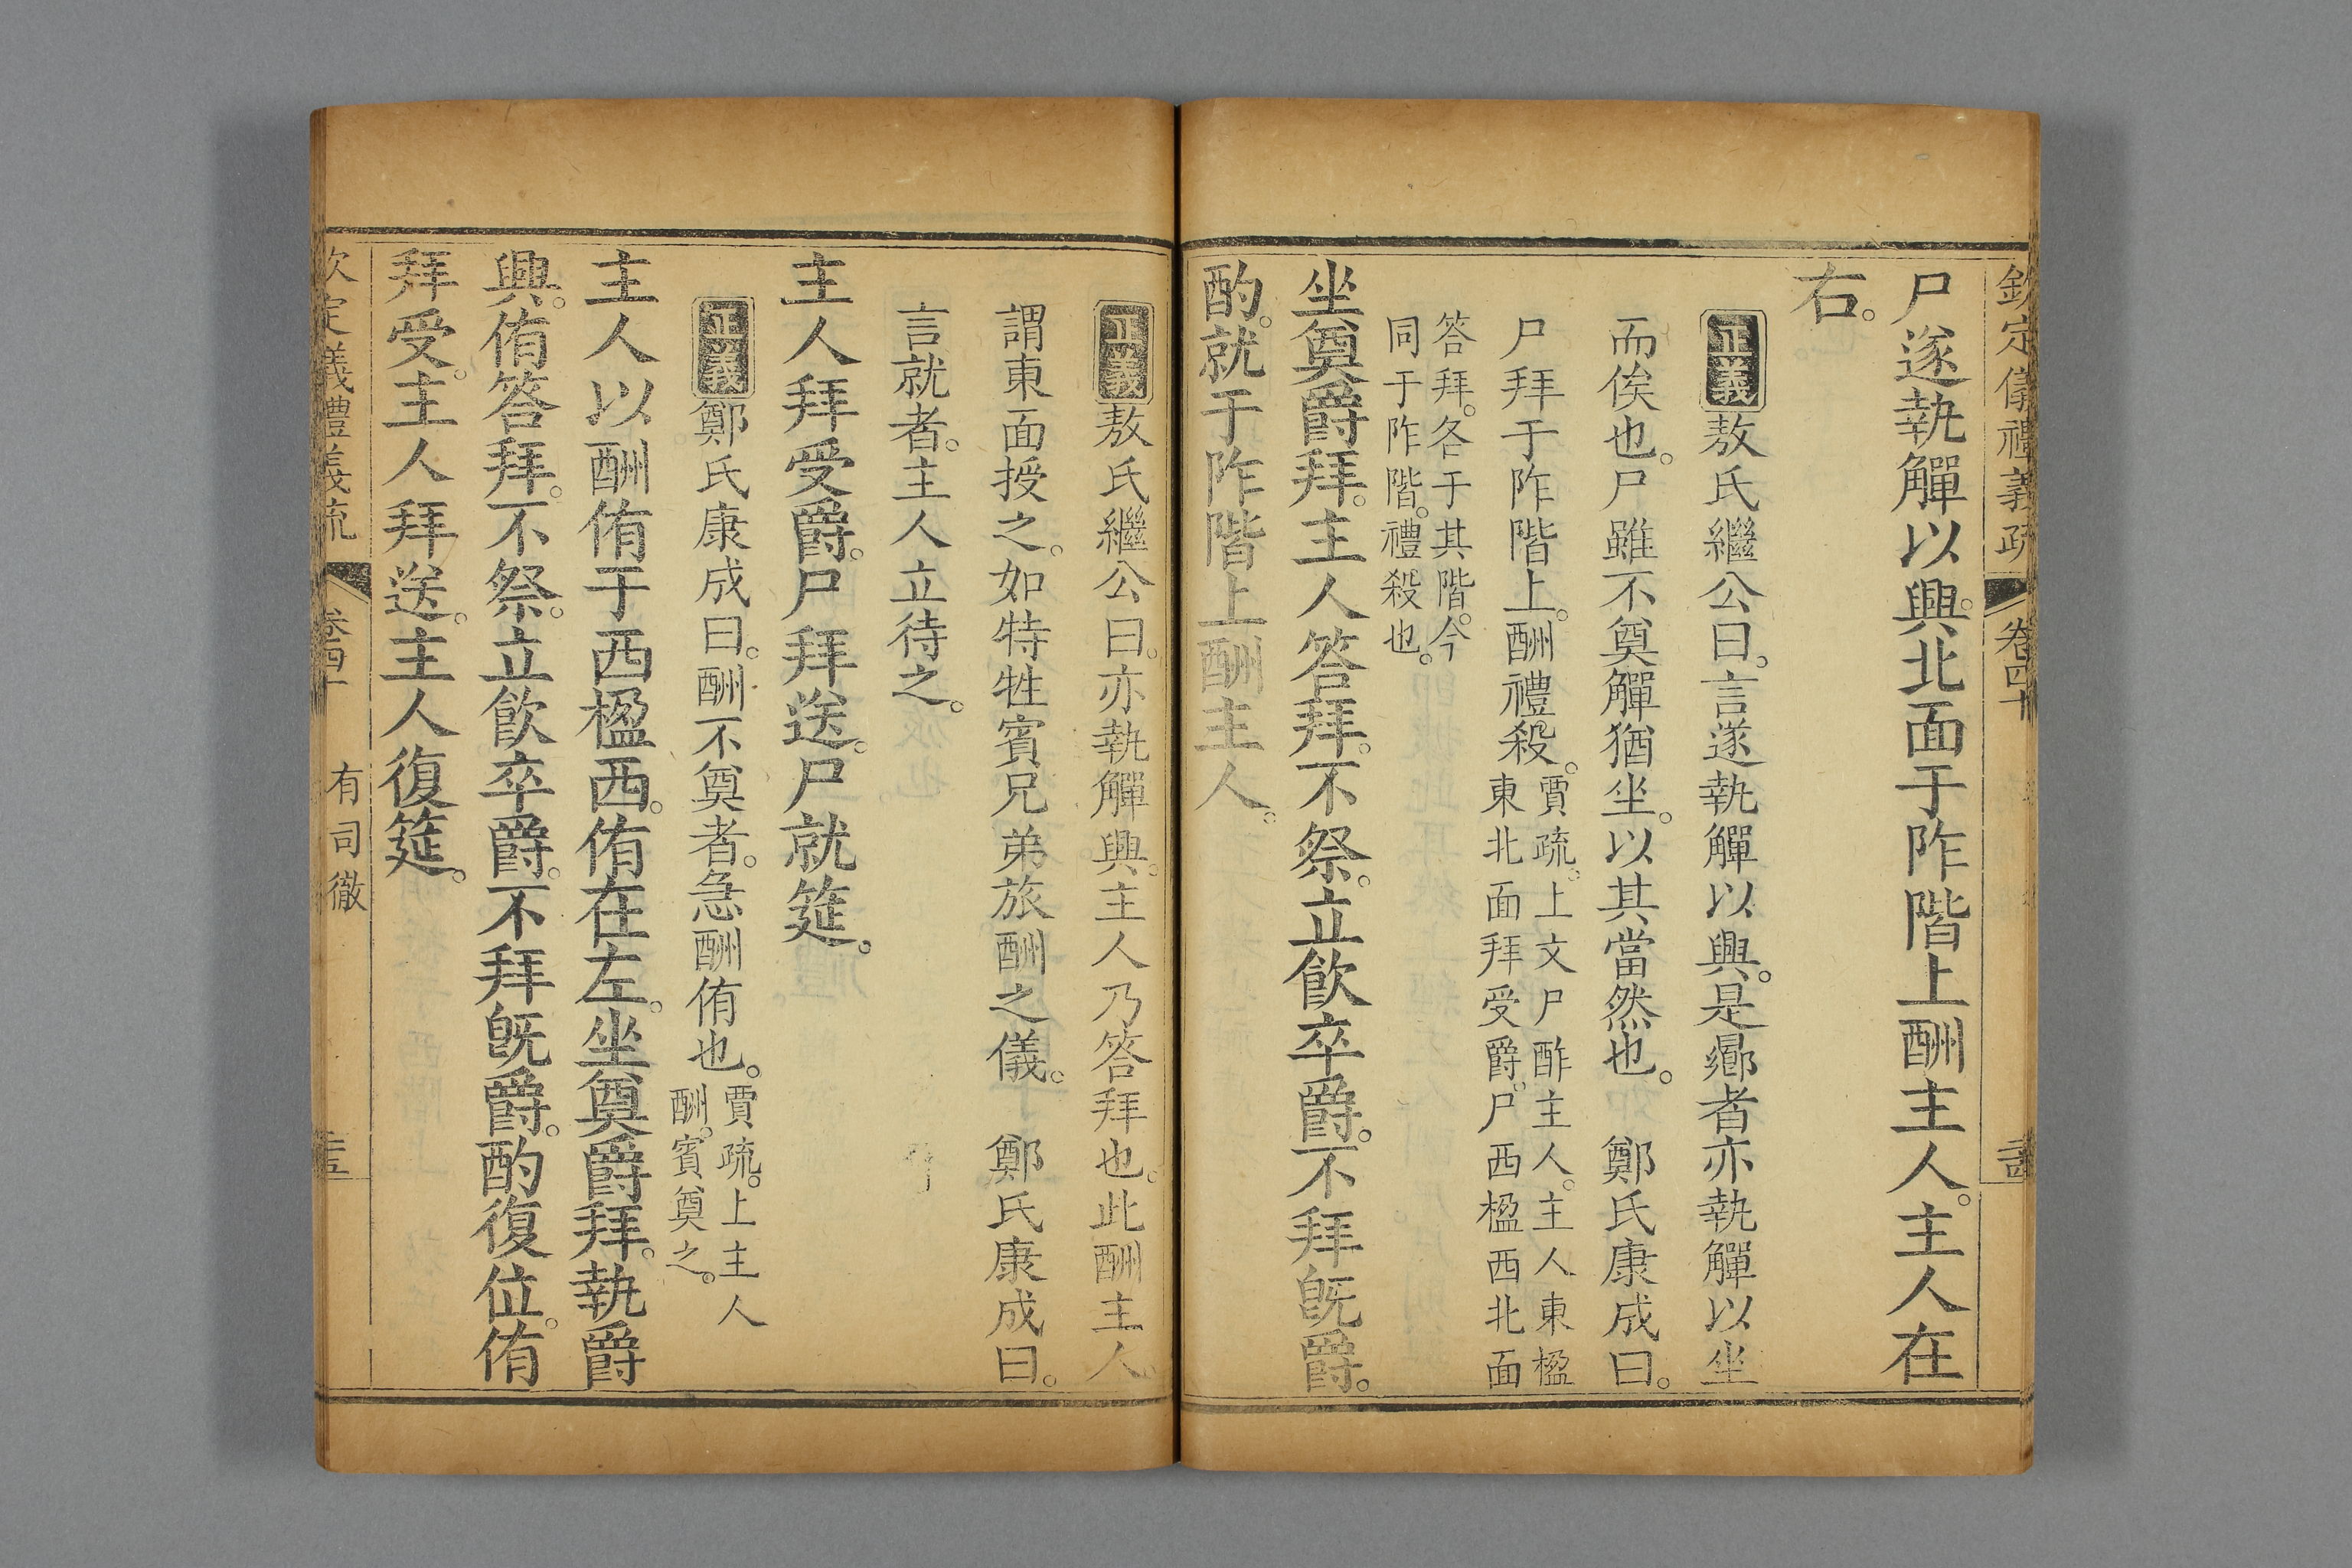 欽定儀禮義疏 卷四十
尸遂執觶以興。北面于阼階上酬主人。主人在
右。
正義 敖氏繼公曰。言遂執觶以興。是曏者亦執觶以坐
而俟也。尸雖不奠觶猶坐。以其當然也。 鄭氏康成曰。
尸拜于阼階上。酬禮殺。賈疏。上文尸酢主人。主人東楹
東北面拜受爵。尸西楹西北面
答拜。各于其階。今
同于阼階。禮殺也。
坐奠爵拜。主人答拜。不祭。立飲卒爵。不拜旣爵。
酌。就于阼階上酬主人。
正義 敖氏繼公曰。亦執觶興。主人乃答拜也。此酬主人。
謂東面授之。如特牲賓兄弟旅酬之儀。 鄭氏康成曰。
言就者。主人立待之。
主人拜受爵。尸拜送。尸就筵。
正義 鄭氏康成曰。酬不奠者。急酬侑也。賈疏。上主人
酬。賓奠之。
主人以酬侑于西楹西。侑在左。坐奠爵拜。執爵
興。侑答拜。不祭。立飲卒爵。不拜旣爵。酌復位。侑
拜受。主人拜送。主人復筵。
欽定儀禮義疏 卷四十 有司徹